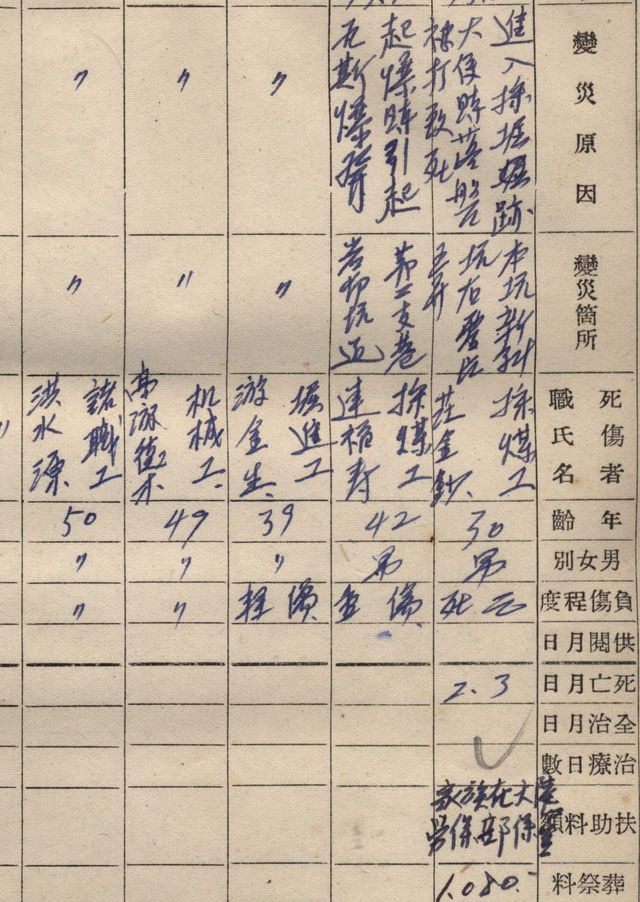 變災原因
進入採掘堀跡
大便時落盤
被打致死
起爆時引起
瓦斯爆發
〃
〃
〃
變災箇所
本坑新斜
坑右壹片
第二支巷
岩切坑道
〃
〃
〃
死傷者
職氏名
採煤工
莊金鈔
採煤工
連稻壽
掘進工
游金生
机械工
諸職工
洪水源
〃
年齡
30
42
39
49
50
男女別
男
男
〃
〃
〃
負傷程度
死亡
重傷
輕傷
〃
〃
供閱月日
死亡月日
2.3
全治月日
治療日數
扶助料額
家族在大陸
勞保部保管
葬祭料
1.080.-